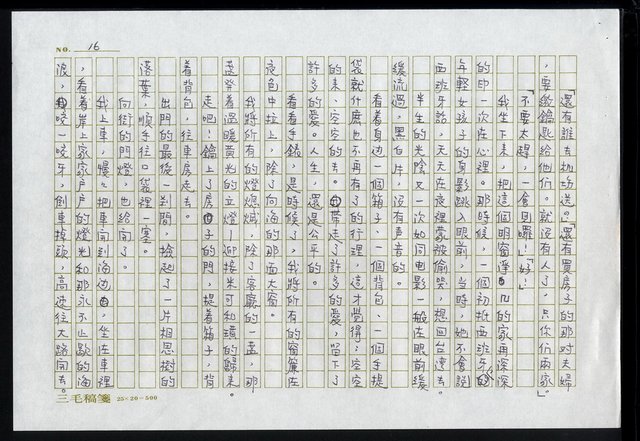 NO. 16
「還有誰去机场送。」「還有買房子的那对夫婦
，要繳鑰匙給他们。就没有人了，只你们兩家。」
「不要太趕，一會到囉！」「好！」
我坐下來，把這個明窗淨几的家再深深
的印一次在心裡。那時候，一個初抵西班牙的
年輕女孩子的身影跳入眼前，当時，她不會說
西班牙話，天天在夜裡蒙被偷哭，想回台灣去。
半生的光陰又一次如同电影一般在眼前緩
緩流過，黑白片，没有声音的。
看着身边一個箱子、一個背包、一個手提
袋就什麼也不再有了的行理，這才覺得：空空
的来、空空的去。帶走了許多的愛，留下了
許多的愛。人生，還是公平的。
看看手錶，是時候了，我將所有的窗簾在
夜色中拉上，除了向海的那面大窗。
我將所有的灯熄滅，除了客廳的一盏，那
盏發着溫暖黄光的立燈—迎接米可和璜的歸来。
走吧！鎖上了房子的門，提着箱子，背
着背包，往車房走去。
出門的最後一刹间，撿起了一片相思樹的
落葉，順手往口袋裡一塞。
向街的門燈，也給開了。
我上車，慢慢把車開到海边，坐在車裡
，看着岸上家家户户的燈光和那永不止歇的海
浪，咬一咬牙，倒車掉頭，高速往大路開去。
三毛稿箋 25×20=500